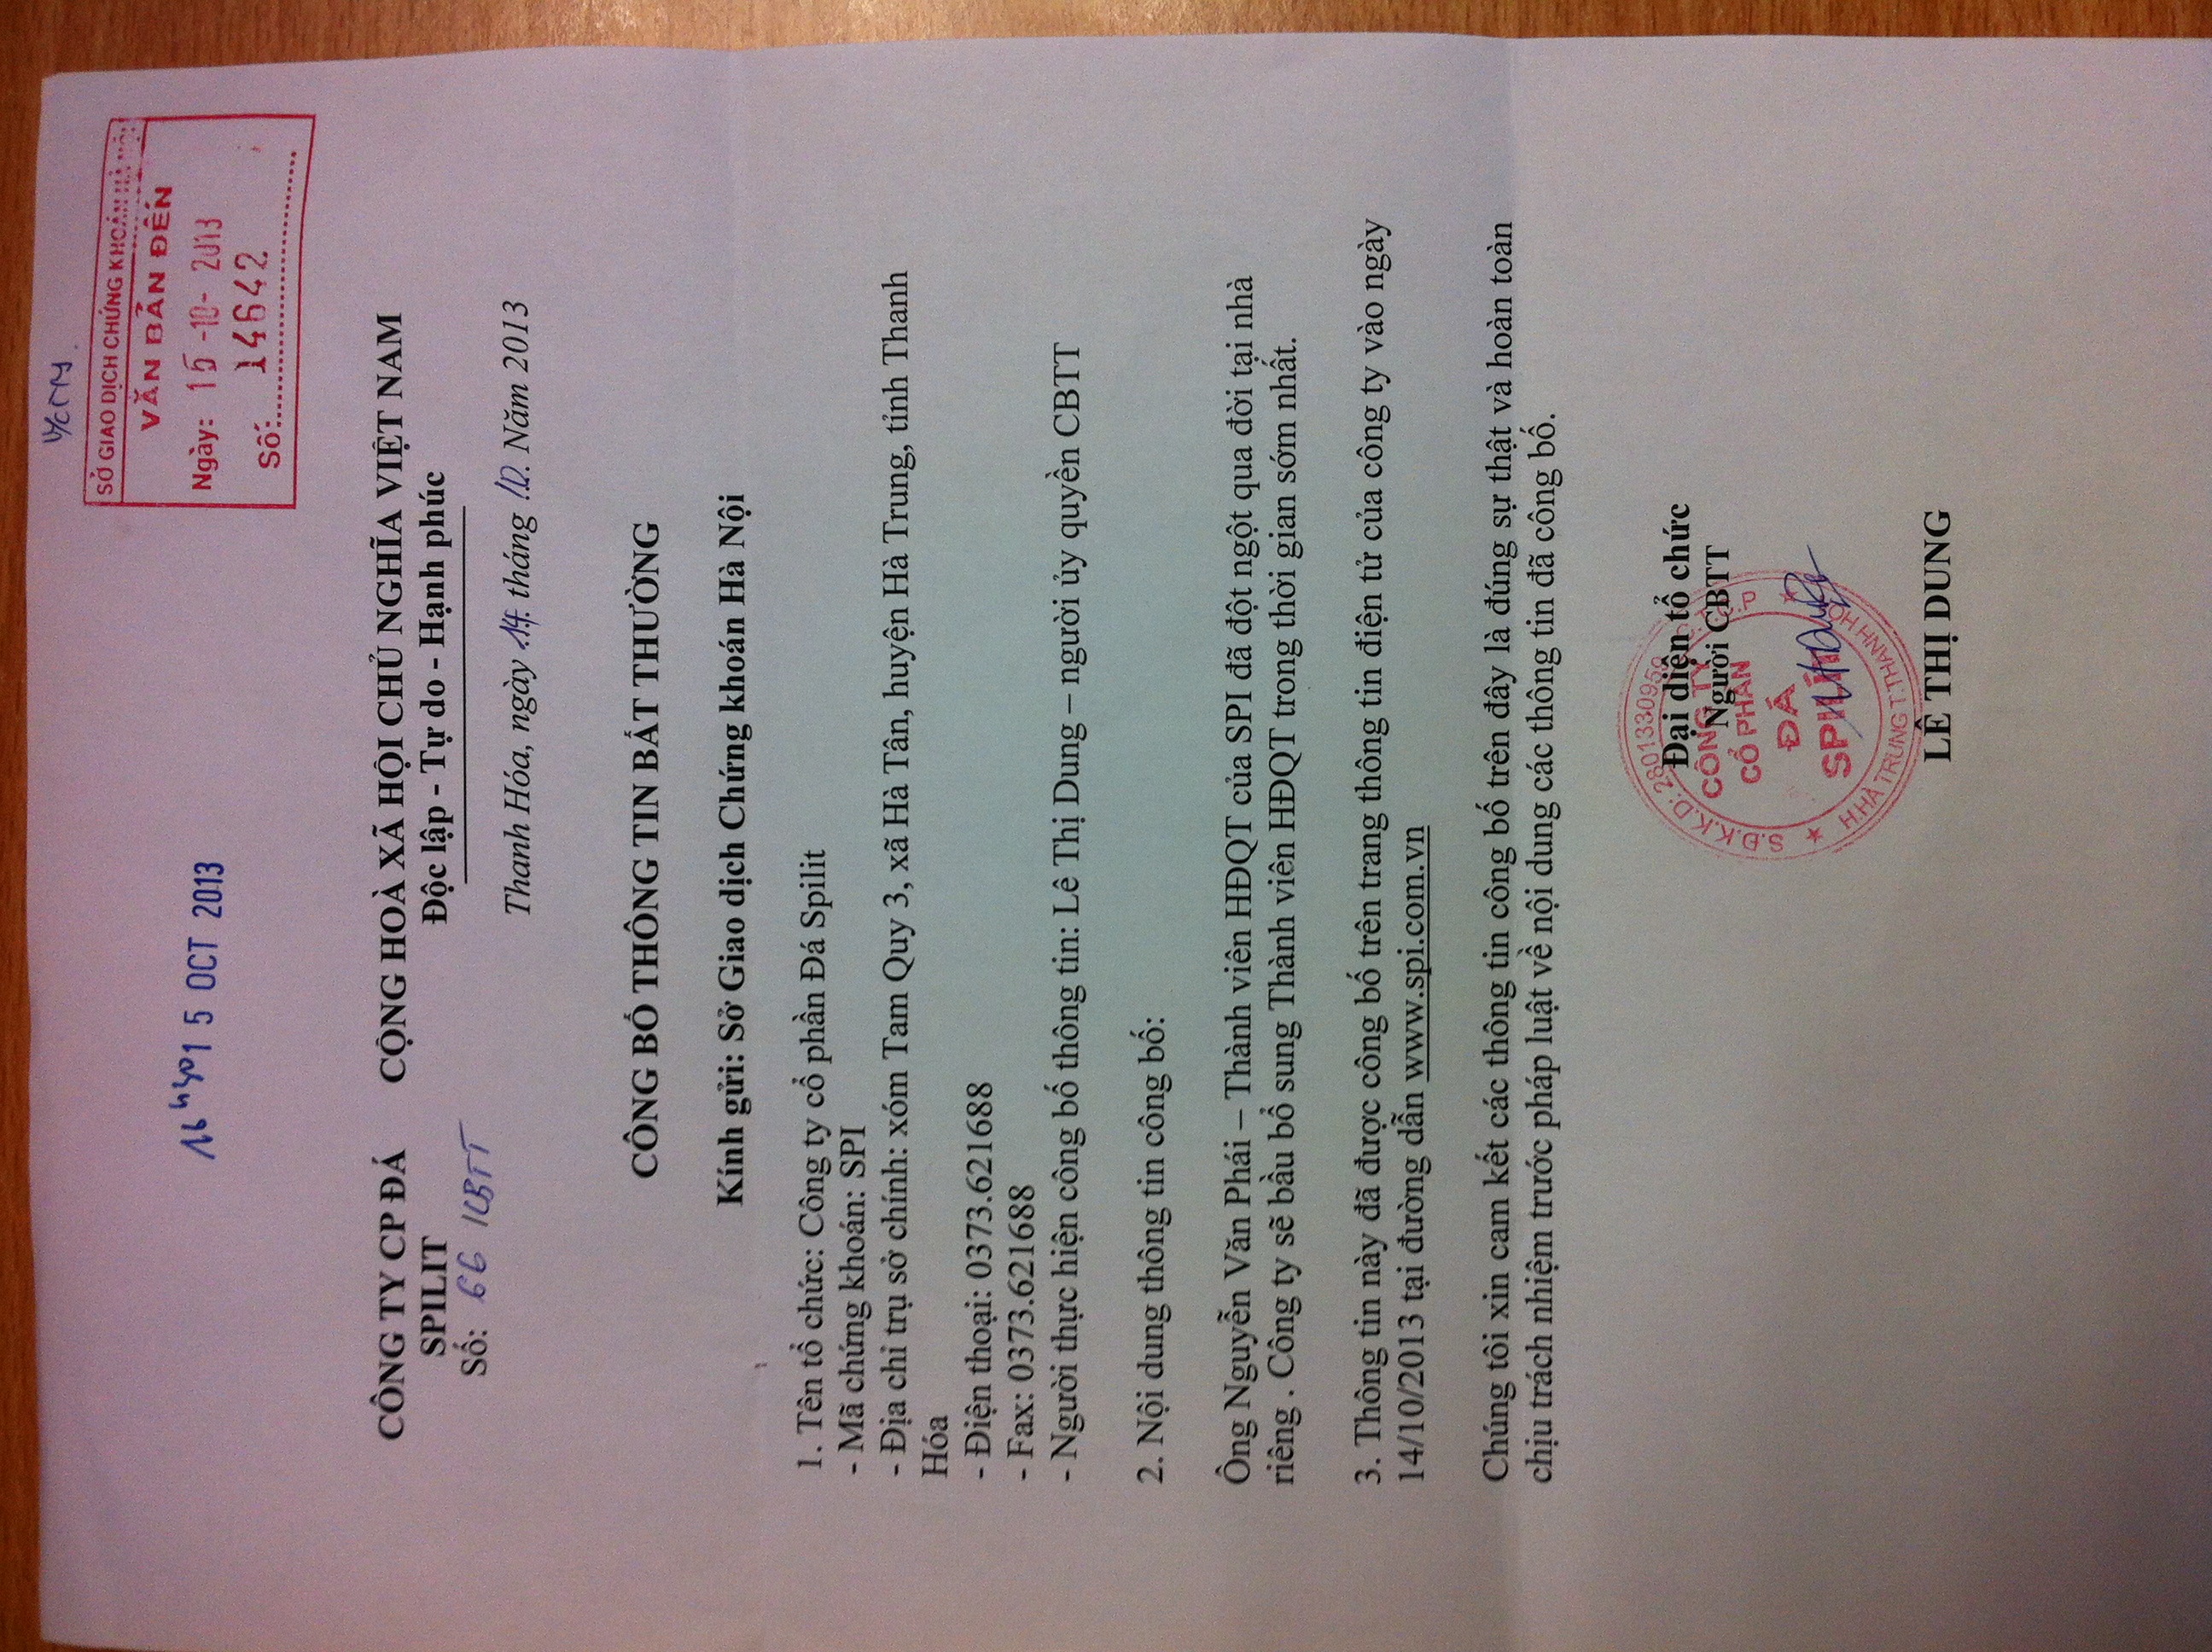 SỞ GIAO DỊCH CHỨNG KHOÁN HÀ NỘI
VĂN BẢN ĐẾN
Ngày: 15 -10- 2013
Số: 14642
16h40 15 OCT 2013
CÔNG TY CP ĐÁ
SPILIT
Số: 66 /CBTT
CỘNG HOÀ XÃ HỘI CHỦ NGHĨA VIỆT NAM
Độc lập - Tự do - Hạnh phúc
Thanh Hóa, ngày 14 tháng 10 Năm 2013
CÔNG BỐ THÔNG TIN BẤT THƯỜNG
Kính gửi: Sở Giao dịch Chứng khoán Hà Nội
1. Tên tổ chức: Công ty cổ phần Đá Spilit
- Mã chứng khoán: SPI
- Địa chỉ trụ sở chính: xóm Tam Quy 3, xã Hà Tân, huyện Hà Trung, tỉnh Thanh
Hóa
- Điện thoại: 0373.621688
- Fax: 0373.621688
- Người thực hiện công bố thông tin: Lê Thị Dung – người ủy quyền CBTT
2. Nội dung thông tin công bố:
Ông Nguyễn Văn Phái – Thành viên HĐQT của SPI đã đột ngột qua đời tại nhà
riêng . Công ty sẽ bầu bổ sung Thành viên HĐQT trong thời gian sớm nhất.
3. Thông tin này đã được công bố trên trang thông tin điện tử của công ty vào ngày
14/10/2013 tại đường dẫn www.spi.com.vn
Chúng tôi xin cam kết các thông tin công bố trên đây là đúng sự thật và hoàn toàn
chịu trách nhiệm trước pháp luật về nội dung các thông tin đã công bố.
Đại diện tổ chức
Người CBTT
S.Đ.K.K.D: 2801330959
CÔNG TY
CỔ PHẦN
ĐÁ
SPILIT
H.HÀ TRUNG T.THANH HOÁ
LÊ THỊ DUNG